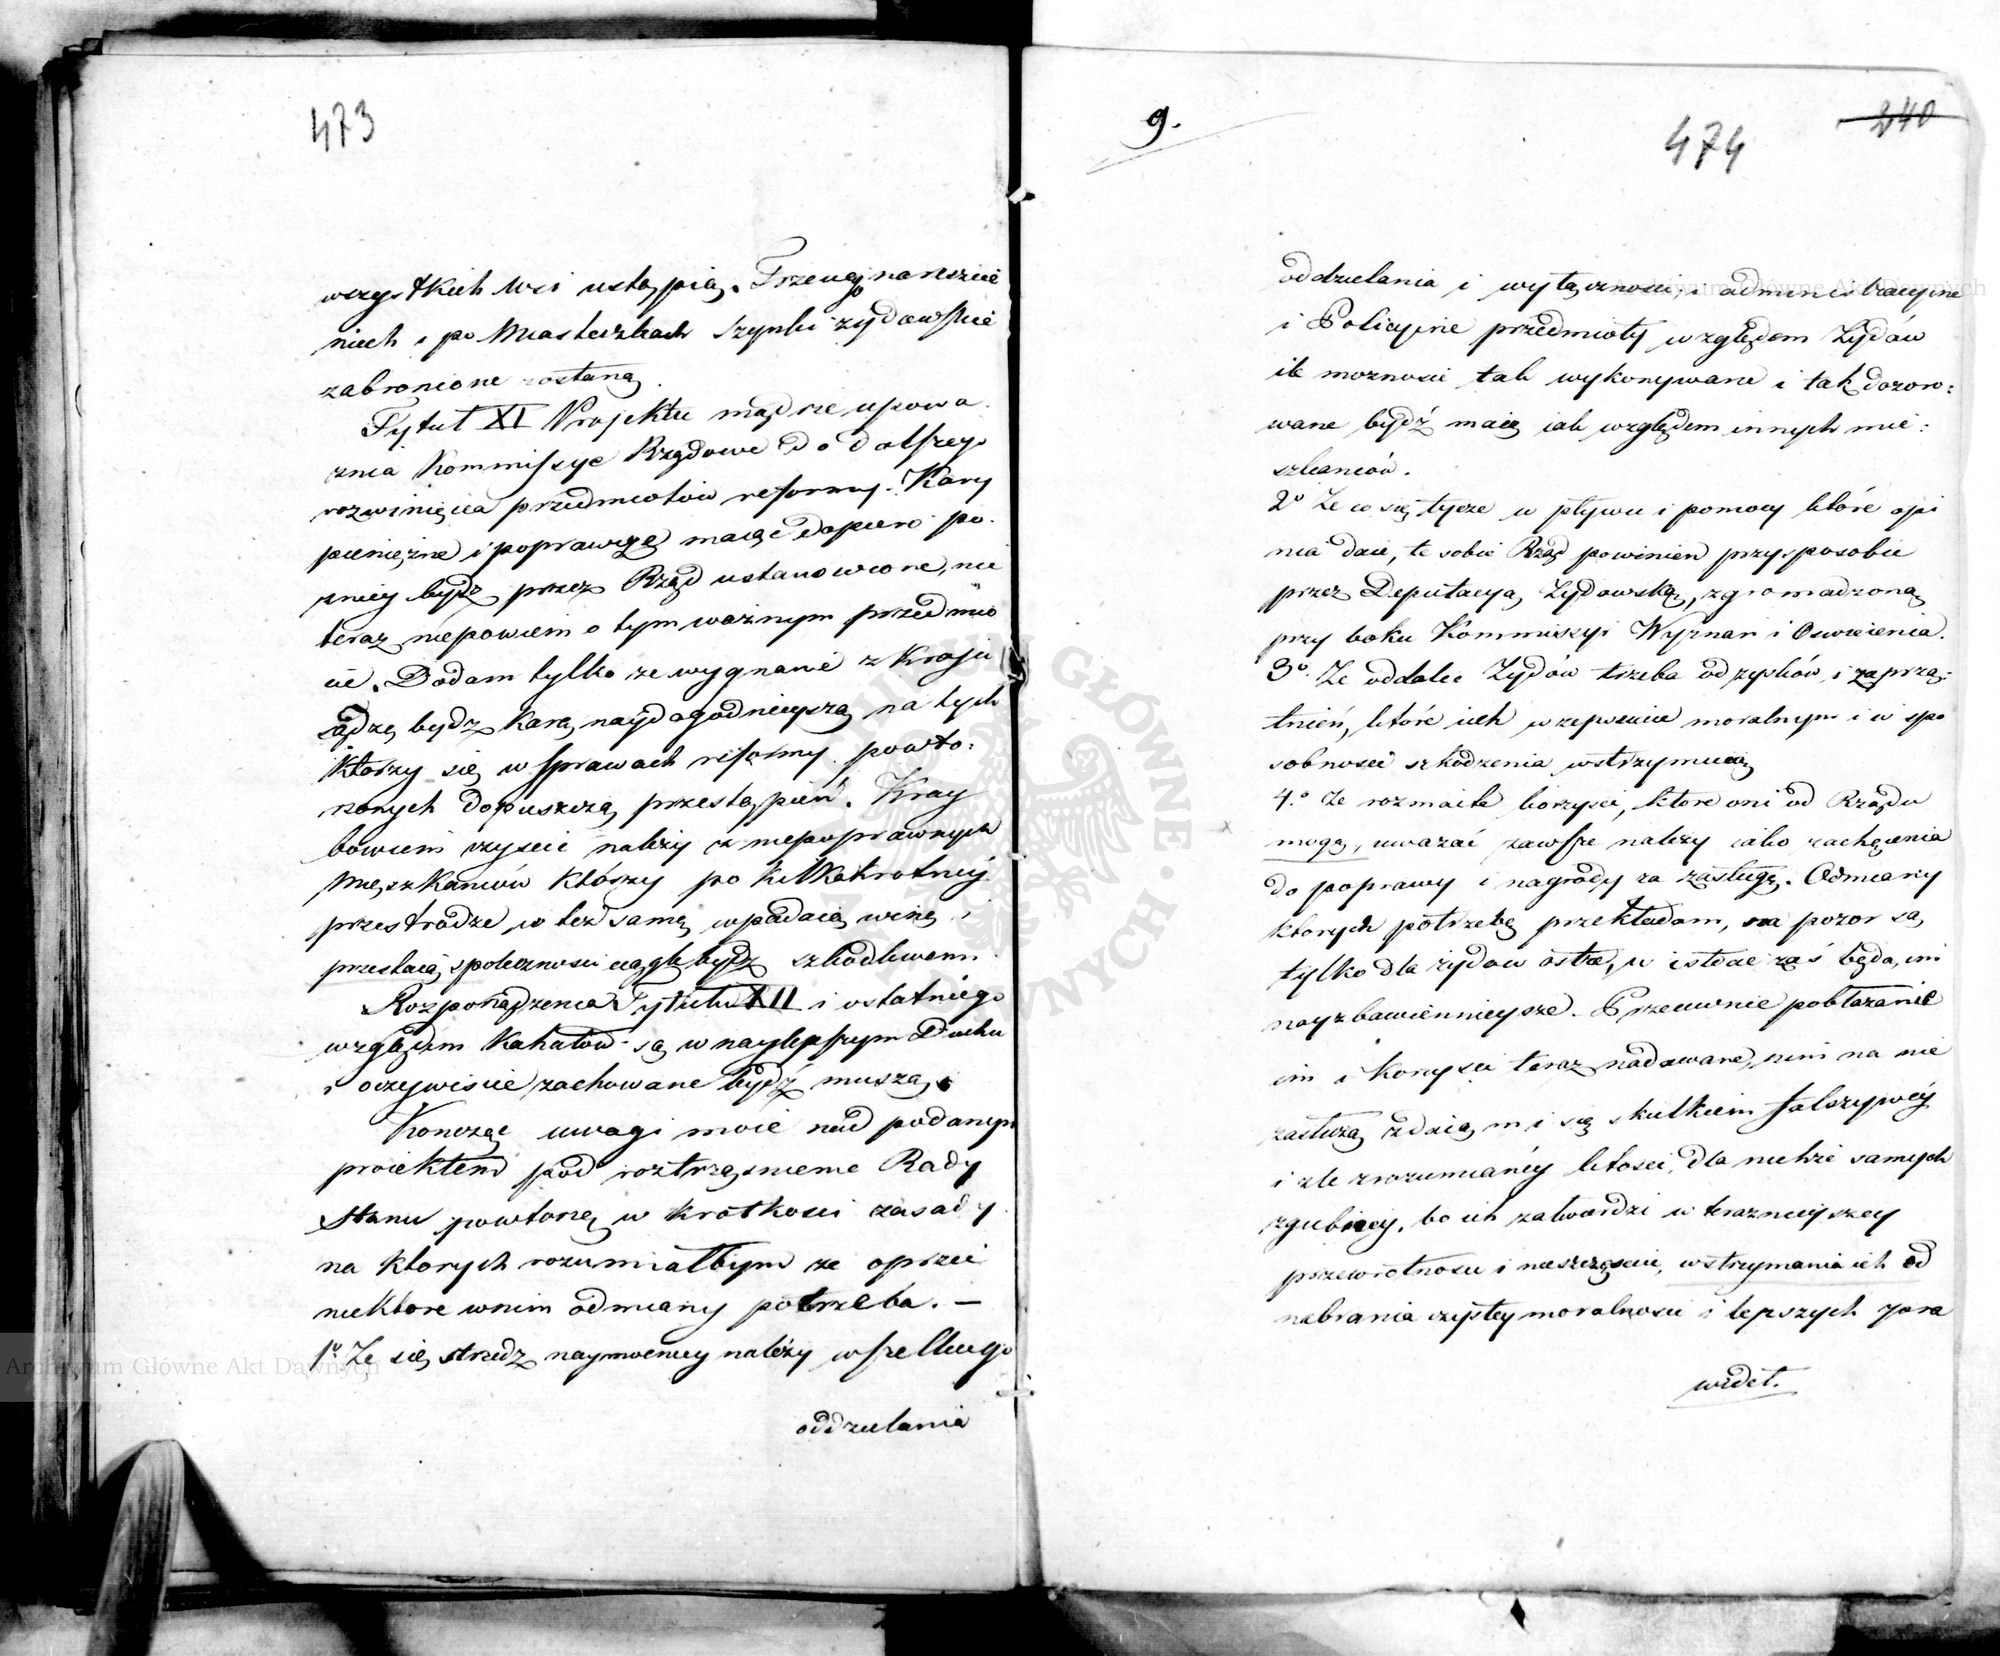 473
wszystkich wsi ustąpią. Trzeciej nareszcie
niech i po Miasteczkach Szynki żydowskie
zabronione zostaną.
Tytuł XI Projektu mądrze upowa
żnia Kommissye Rządowe do dalszego
rozwinięcia przedmiotów reformy. Kary
pieniężne i poprawcze maiąc dopiero po
zniey bydz przez Rząd ustanowione, nie
teraz niepowiem o tym ważnym przedmio
cie. Dodam tylko ze wygnanie z Kraju
sądzę bydz karą naydogodnieyszą na tych
ktorzy się w sprawach reformy powto-
rzonych dopuszczą przestąpień. Kray
bowiem czyscic należy z niepoprawnych
Mięszkancow którzy po kilkakrotnéy
przestrodze w też samę wpadaią winę i
przestaią społeczności ciągle bydz szkodliwemi.
Rozporządzenia Tytułu XII i ostatniego
względem Kahałow są w naylepszym Duchu
i oczywiscie zachowane bydź muszą.
Koncząc uwagi moie nad podanym
proiektem pod roztrząsnienie Rady
Stanu powtorzę w krotkosci zasady
na ktorych rozumiałbym ze oprzeć
niektore wnim odmiany potrzeba. —
1º Ze się strzedz naymocniey należy wszelkiego
oddzielania
9.
474
240
oddzielania i wyłączności, i administracyine
i Policyine przedmioty względem Żydów
ile moznosci tak wykonywane i tak dozoro-
wane bydź maią iak względem innych mie-
szkańców.
2º Ze co się tycze wpływu i pomocy które opi
nia daie, te sobie Rząd powinien przysposobic
przez Deputacyą Żydowską, zgromadzoną
przy boku Kommissyi Wyznań i Oswiecenia.
3º. Ze oddalic Żydów trzeba od zysków i zaprzą-
tnień, które ich w zepsuciu moralnym i w spo
sobnosci szkodzenia wstrzymuią
4.º Ze rozmaite korzysci, ktore oni od Rządu
mogą, uwazać zawsze nalezy iako zachęcenia
do poprawy i nagrody za zasługę. Odmiany
ktorych potrzebę przekładam, na pozor są
tylko dla żydow ostre, w istocie zaś będą im
nayzbawiennieysze. Przeciwnie pobłażanie
im i korzysci teraz nadawane, nim na nie
zasłużą zdaią mi się skutkiem fałszywéy
i zle zrozumiánéy litosci, dla nichże samych
zgubney, bo ich zatwardzi w teraznieyszey
przewrotnosci i nieszczęsciu, wstrzymania ich od
nabrania czystey moralnosci i lepszych zara
wideł.
Archiwum Główne Akt Dawnych